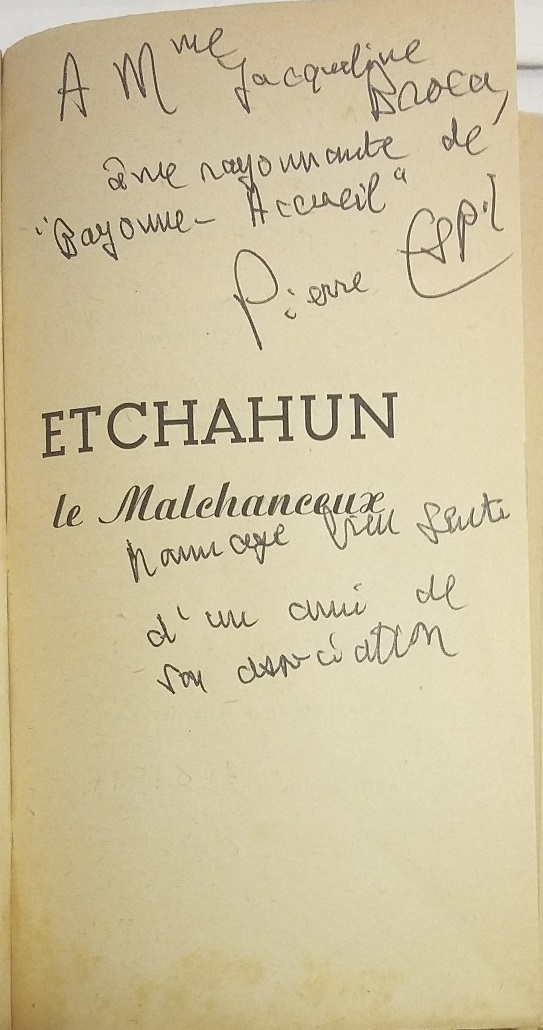 A Mme Jacqueline
Broca,
âme rayonnante de
"Bayonne-Accueil"
Pierre Espil
ETCHAHUN
le Malchanceux
hommage bien
d'un ami de
son association